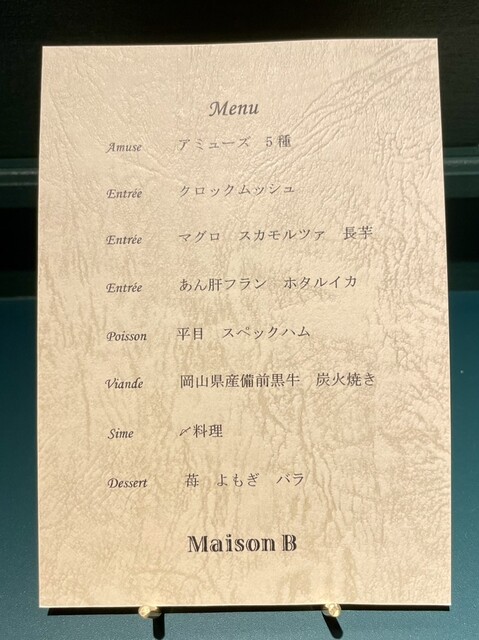 Menu
Amuse アミューズ 5種
Entrée クロックムッシュ
Entrée マグロ スカモルツァ 長芋
Entrée あん肝フラン ホタルイカ
Poisson 平目 スペックハム
Viande 岡山県産備前黒牛 炭火焼き
Sime 〆料理
Dessert 苺 よもぎ バラ
Maison B